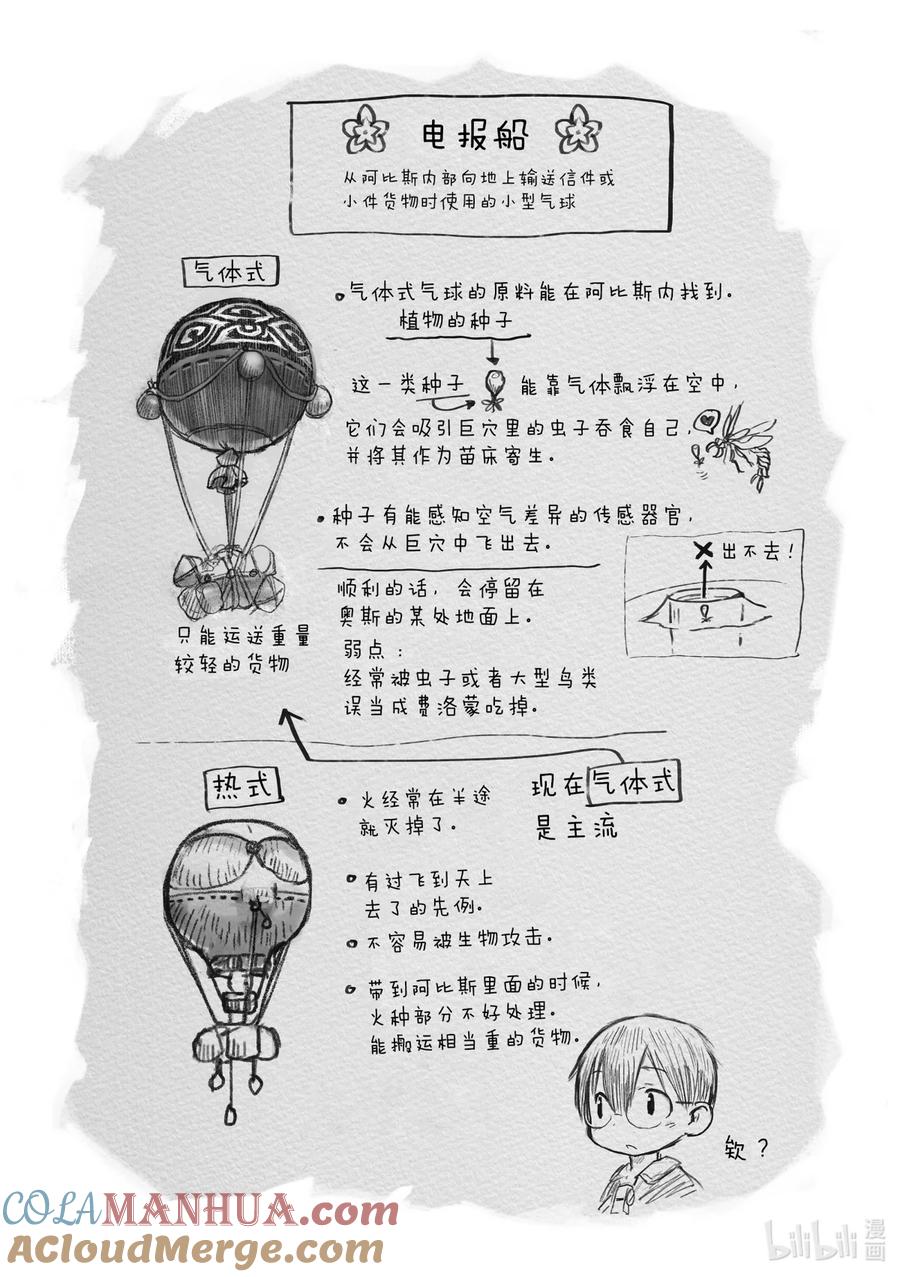 电报船
从阿比斯内部向地上输送信件或
小件货物时使用的小型气球
气体式
气体式气球的原料能在阿比斯内找到。
植物的种子
这一类种子 能靠气体飘浮在空中，
它们会吸引巨穴里的虫子吞食自己，
并将其作为苗床寄生。
种子有能感知空气差异的传感器官，
不会从巨穴中飞出去。
出不去！
只能运送重量
较轻的货物
顺利的话，会停留在
奥斯的某处地面上。
弱点：
经常被虫子或者大型鸟类
误当成费洛蒙吃掉。
现在气体式
是主流
热式
火经常在半途
就灭掉了。
有过飞到天上
去了的先例。
不容易被生物攻击。
带到阿比斯里面的时候，
火种部分不好处理。
能搬运相当重的货物。
欸？
COLAMANHUA.com
ACloudMerge.com
bilibili 漫画